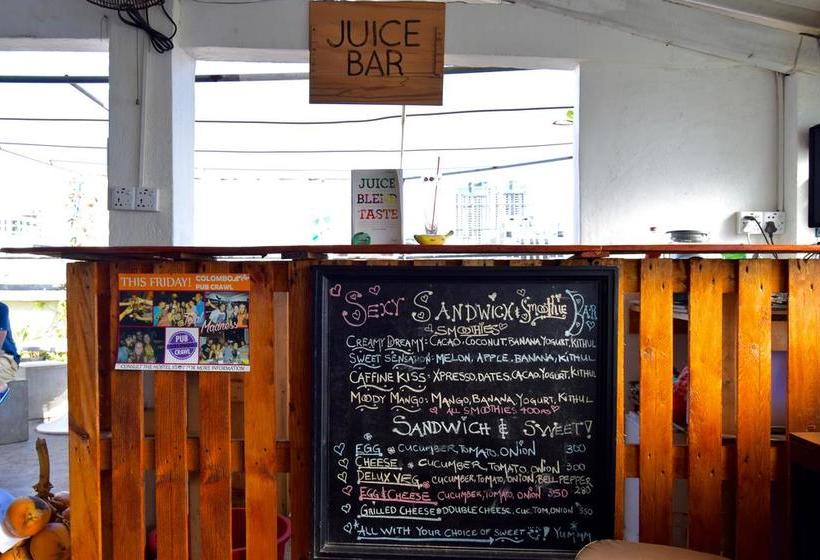 JUICE
BAR
JUICE
BLEND
TASTE
THIS FRIDAY!
COLOMBO
PUB CRAWL
Madness
PUB
CRAWL
CONSULT THE HOSTEL STAFF FOR MORE INFORMATION
SEXY SANDWICH & Smoothie BAR
SMOOTHIES
CREAMY DREAMY: CACAO, COCONUT, BANANA, YOGURT, KITHUL
SWEET SENSATION: MELON, APPLE, BANANA, KITHUL
CAFFINE KISS: XPRESSO, DATES, CACAO, YOGURT, KITHUL
MOODY MANGO: MANGO, BANANA, YOGURT, KITHUL
ALL SMOOTHIES 400
SANDWICH & SWEET!
EGG * CUCUMBER, TOMATO, ONION 300
CHEESE * CUCUMBER, TOMATO, ONION 300
DELUX VEG * CUCUMBER, TOMATO, ONION, BELL PEPPER 280
EGG & CHEESE CUCUMBER, TOMATO, ONION 350
GRILLED CHEESE * DOUBLE CHEESE, CUC, TOM, ONION 350
* ALL WITH YOUR CHOICE OF SWEET! YUMMM